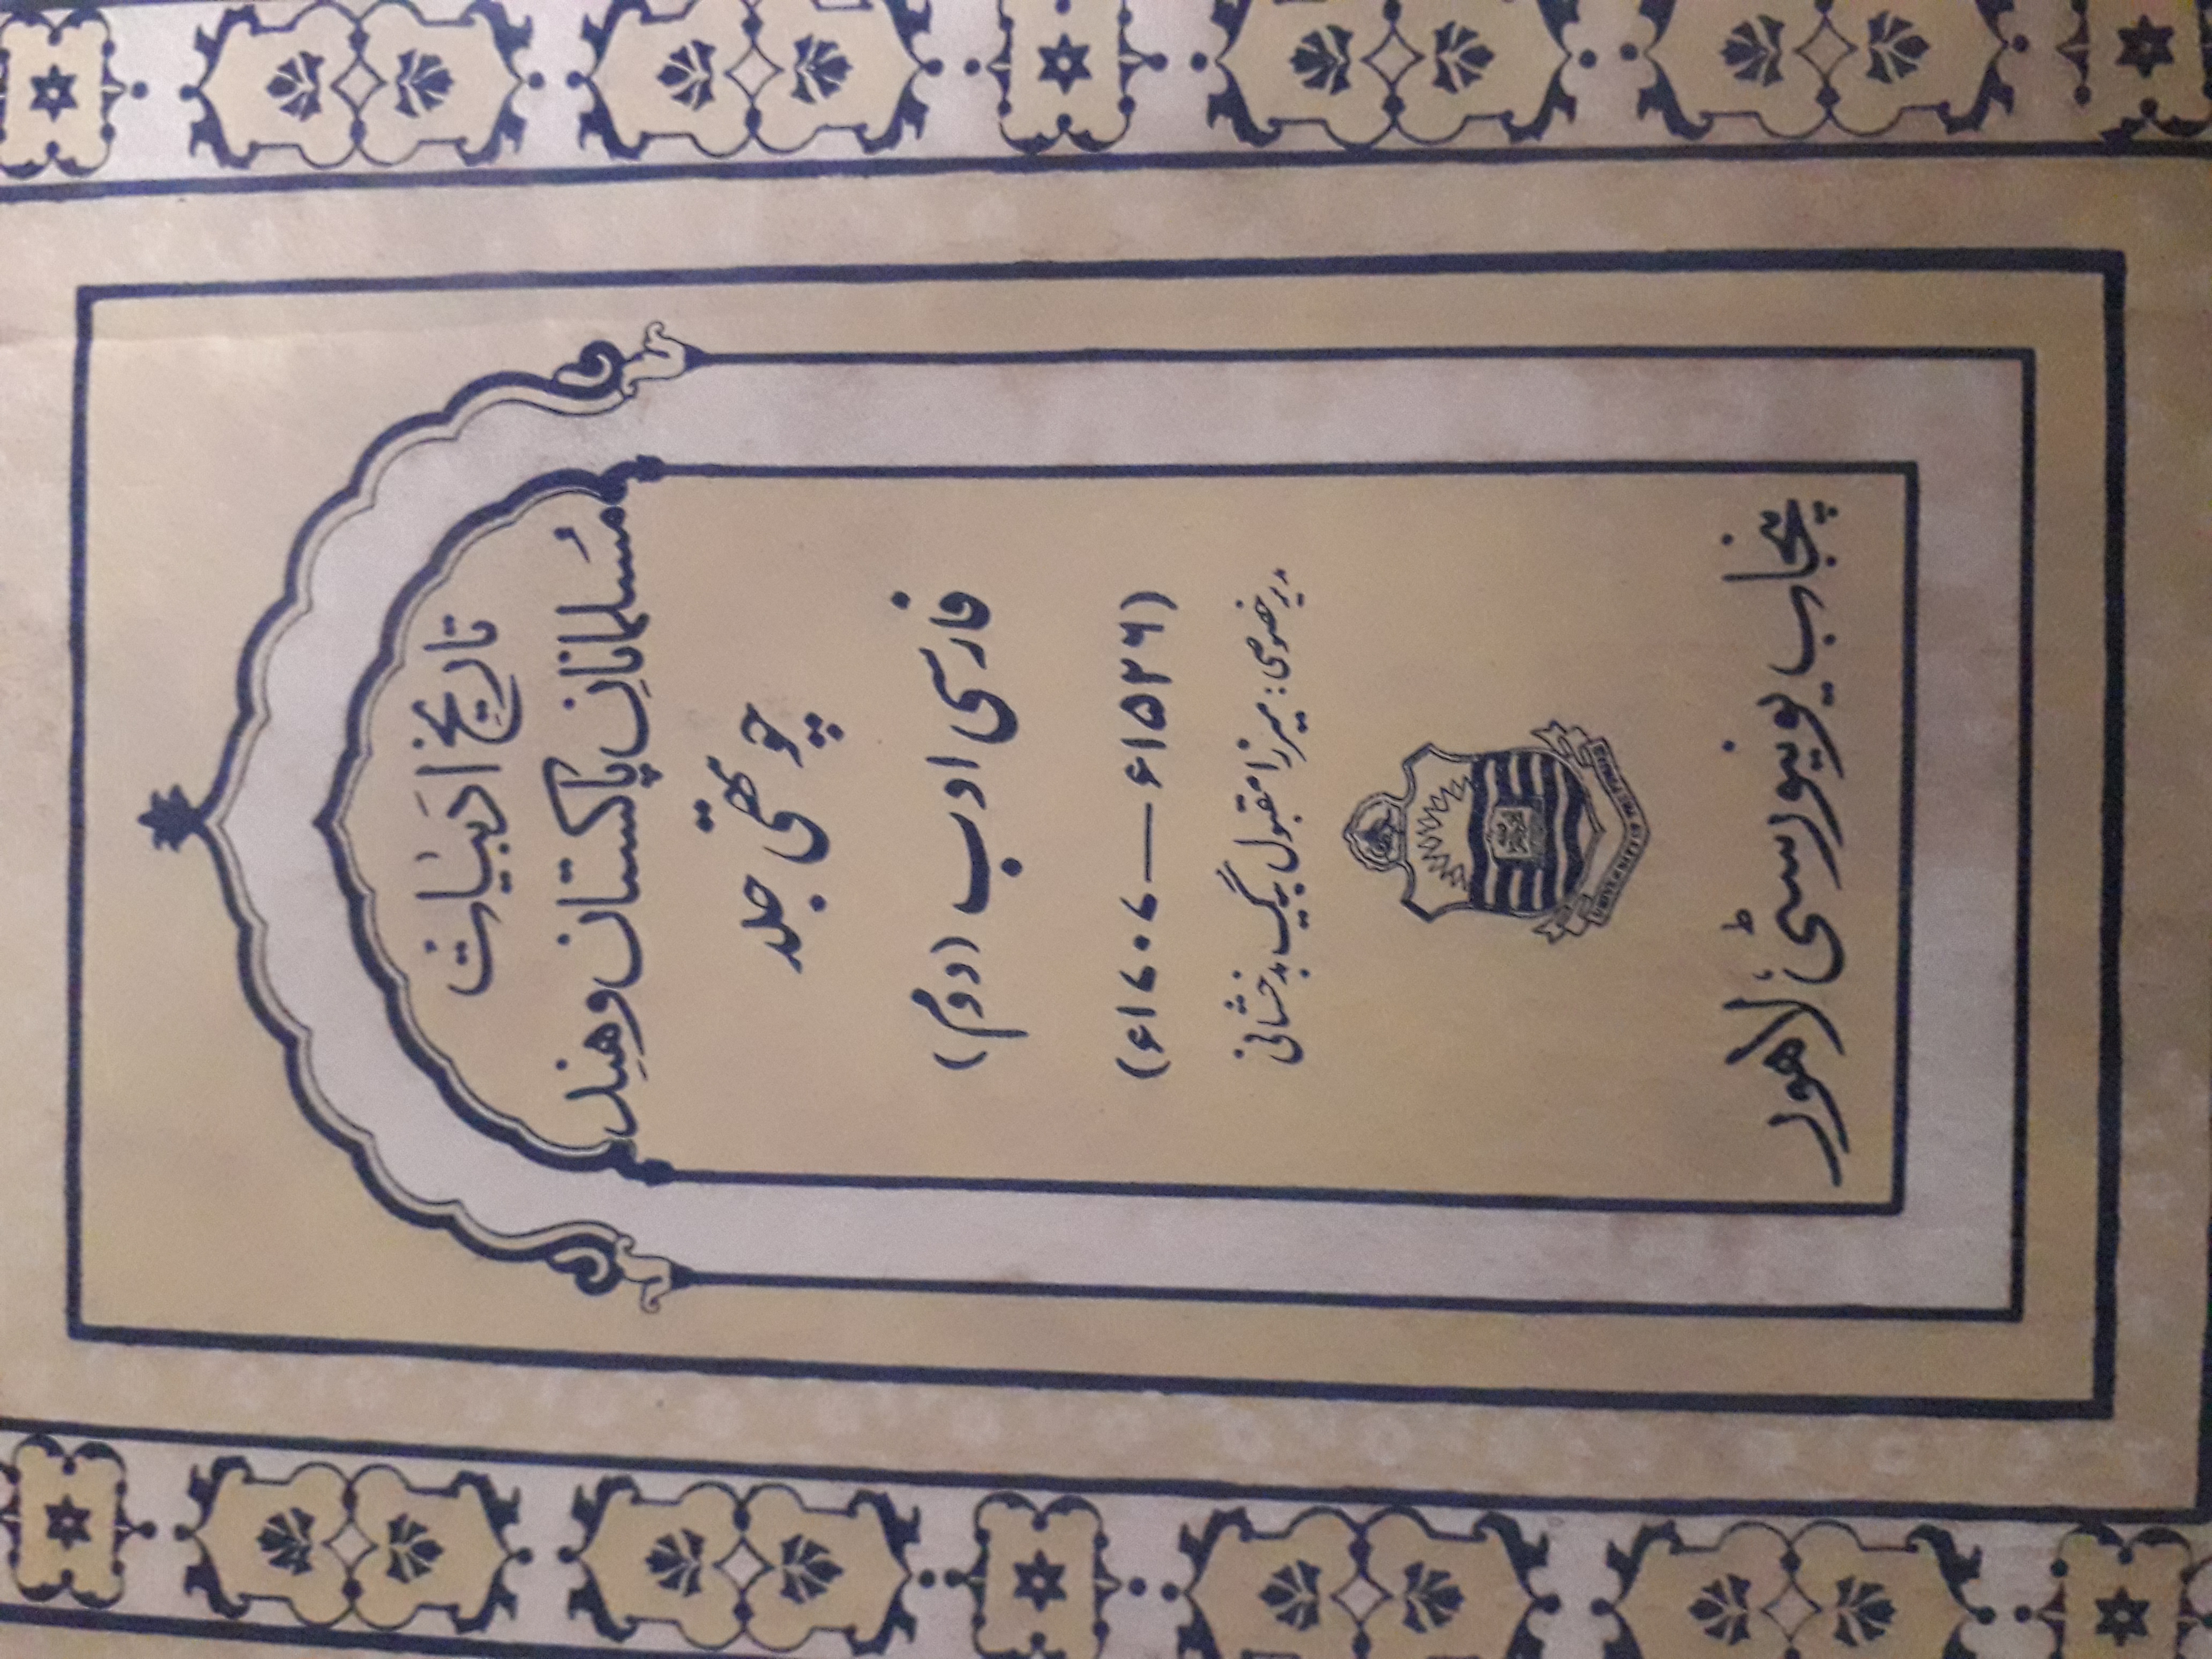 تاریخ ادبیات
مسلمانانِ پاکستان و ہند
چوتھی جلد
فارسی ادب (دوم)
(۱۵۲۶ء — ۱۷۰۷ء)
مدیر خصوصی: میرزا مقبول بیگ بدخشانی
پنجاب یونیورسٹی، لاہور